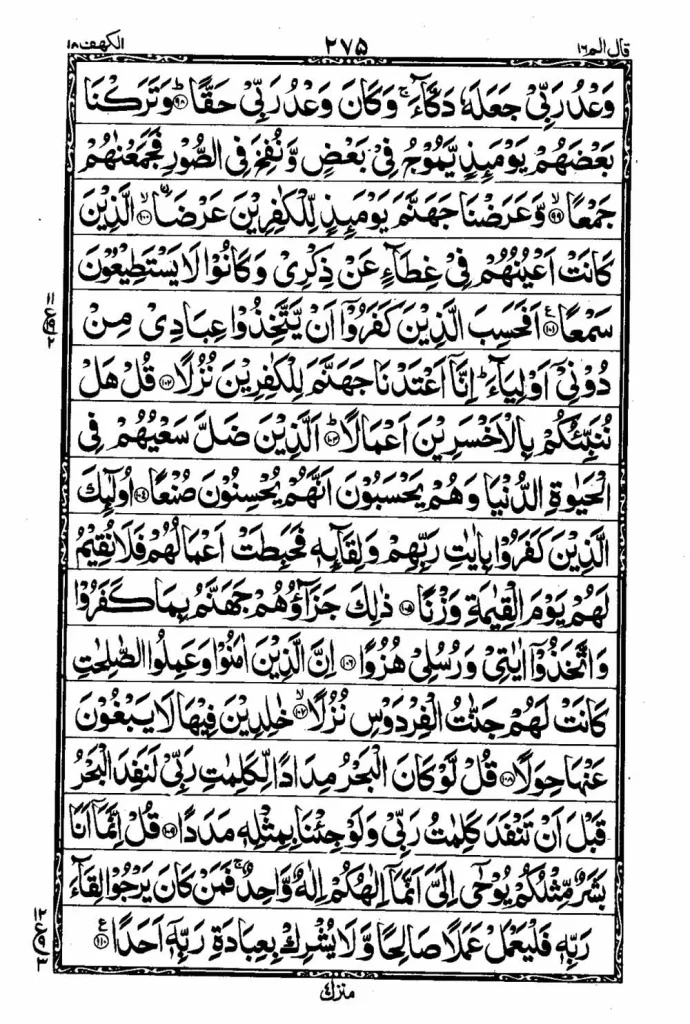 قال الم ١٦
٢٧٥
الكهف ١٨
وَعْدُ رَبِّيْ جَعَلَهٗ دَكَّآءَ ۚ وَكَانَ وَعْدُ رَبِّيْ حَقًّا ؕ ﴿۹۸﴾ وَتَرَكْنَا
بَعْضَهُمْ يَوْمَئِذٍ يَّمُوْجُ فِيْ بَعْضٍ وَّنُفِخَ فِي الصُّوْرِ فَجَمَعْنٰهُمْ
جَمْعًا ۙ ﴿۹۹﴾ وَّعَرَضْنَا جَهَنَّمَ يَوْمَئِذٍ لِّلْكٰفِرِيْنَ عَرْضًا ۙ ﴿۱۰۰﴾ الَّذِيْنَ
كَانَتْ اَعْيُنُهُمْ فِيْ غِطَآءٍ عَنْ ذِكْرِيْ وَكَانُوْا لَا يَسْتَطِيْعُوْنَ
سَمْعًا ﴿۱۰۱﴾ ع اَفَحَسِبَ الَّذِيْنَ كَفَرُوْٓا اَنْ يَّتَّخِذُوْا عِبَادِيْ مِنْ
دُوْنِيْٓ اَوْلِيَآءَ ؕ اِنَّآ اَعْتَدْنَا جَهَنَّمَ لِلْكٰفِرِيْنَ نُزُلًا ﴿۱۰۲﴾ قُلْ هَلْ
نُنَبِّئُكُمْ بِالْاَخْسَرِيْنَ اَعْمَالًا ؕ ﴿۱۰۳﴾ اَلَّذِيْنَ ضَلَّ سَعْيُهُمْ فِي
الْحَيٰوةِ الدُّنْيَا وَهُمْ يَحْسَبُوْنَ اَنَّهُمْ يُحْسِنُوْنَ صُنْعًا ﴿۱۰۴﴾ اُولٰٓئِكَ
الَّذِيْنَ كَفَرُوْا بِاٰيٰتِ رَبِّهِمْ وَلِقَآئِهٖ فَحَبِطَتْ اَعْمَالُهُمْ فَلَا نُقِيْمُ
لَهُمْ يَوْمَ الْقِيٰمَةِ وَزْنًا ﴿۱۰۵﴾ ذٰلِكَ جَزَآؤُهُمْ جَهَنَّمُ بِمَا كَفَرُوْا
وَاتَّخَذُوْٓا اٰيٰتِيْ وَرُسُلِيْ هُزُوًا ﴿۱۰۶﴾ اِنَّ الَّذِيْنَ اٰمَنُوْا وَعَمِلُوا الصّٰلِحٰتِ
كَانَتْ لَهُمْ جَنّٰتُ الْفِرْدَوْسِ نُزُلًا ۙ ﴿۱۰۷﴾ خٰلِدِيْنَ فِيْهَا لَا يَبْغُوْنَ
عَنْهَا حِوَلًا ﴿۱۰۸﴾ قُلْ لَّوْ كَانَ الْبَحْرُ مِدَادًا لِّكَلِمٰتِ رَبِّيْ لَنَفِدَ الْبَحْرُ
قَبْلَ اَنْ تَنْفَدَ كَلِمٰتُ رَبِّيْ وَلَوْ جِئْنَا بِمِثْلِهٖ مَدَدًا ﴿۱۰۹﴾ قُلْ اِنَّمَآ اَنَا
بَشَرٌ مِّثْلُكُمْ يُوْحٰٓى اِلَيَّ اَنَّمَآ اِلٰهُكُمْ اِلٰهٌ وَّاحِدٌ ۚ فَمَنْ كَانَ يَرْجُوْا لِقَآءَ
رَبِّهٖ فَلْيَعْمَلْ عَمَلًا صَالِحًا وَّلَا يُشْرِكْ بِعِبَادَةِ رَبِّهٖٓ اَحَدًا ﴿۱۱۰﴾ ع
منزل ٤